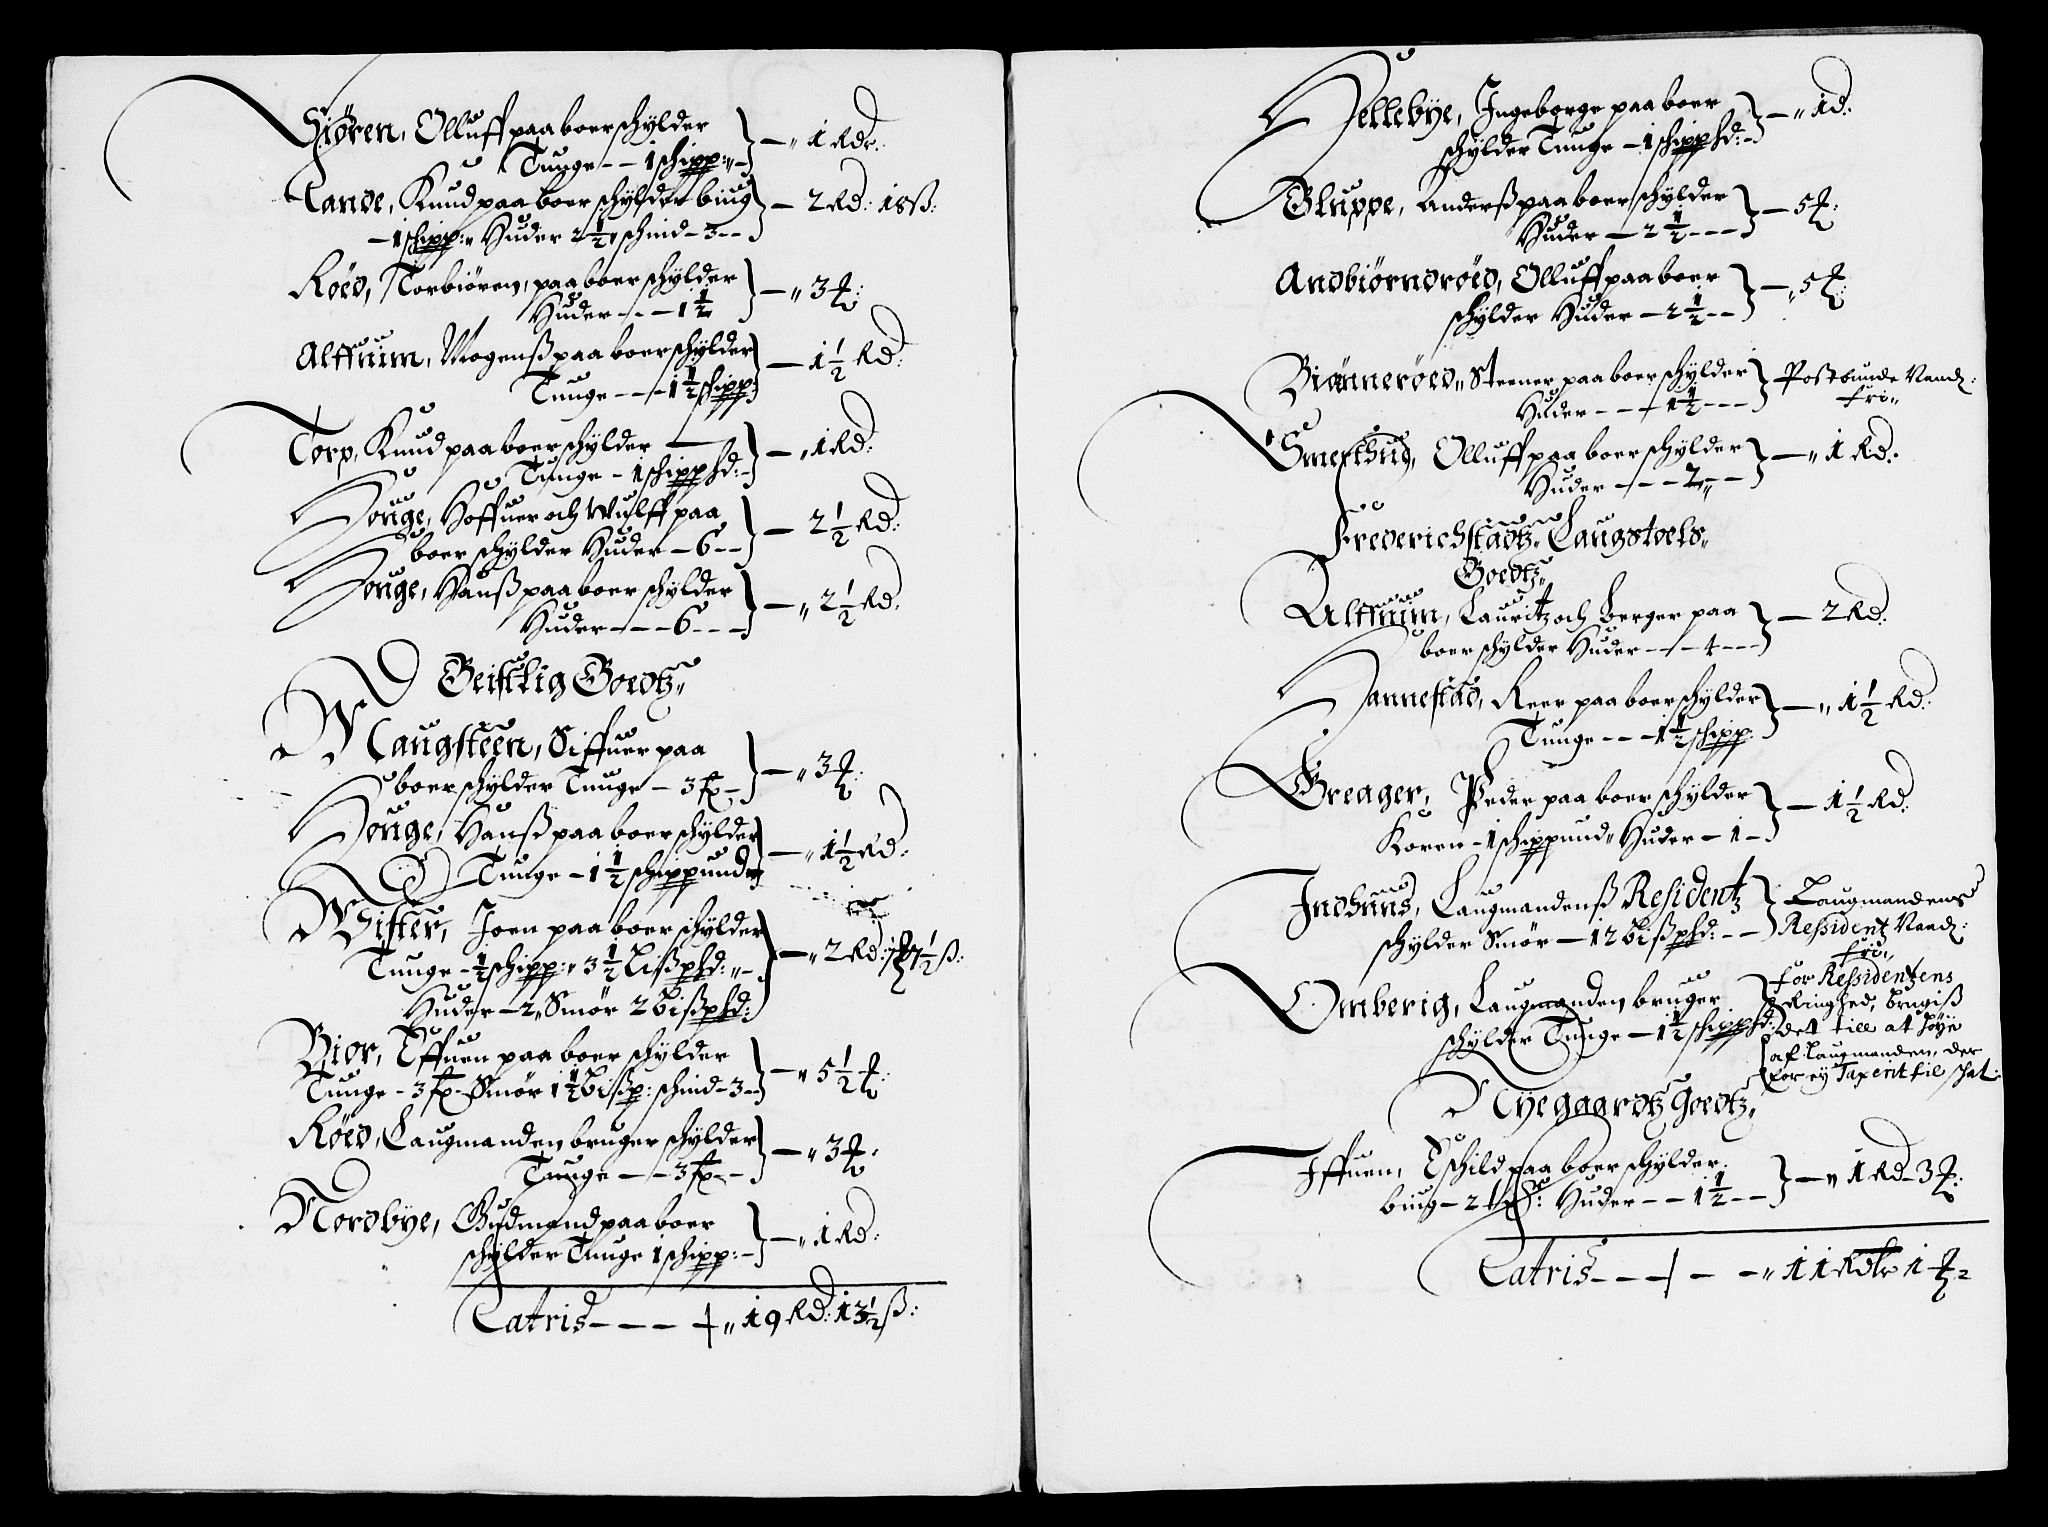 Siøren, Olluff paa boer schylder
Tunge - - 1 schipp: - } - 1 Rdr:
Lande, Knud paa boer schylder biug
- 1 schipp: Huder 2½ schind - 3 - - } - 2 Rd: 18 ß:
Røed, Torbiøren, paa boer schylder
Huder - - - 1½ } - 3
Alffuim, Mogenß paa boer schylder
Tunge - - - 1½ schipp: } - 1½ Rd:
Torp, Knud paa boer schylder
Tunge - 1 schippd: - } - 1 Rd:
Houge, Hoffuer och Wulff paa
boer schylder Huder - 6 - - } - 2½ Rd:
Houge, Hanß paa boer schylder
Huder - - - 6 - - - } - 2½ Rd.
Geistlig Goedtz
Maugsteen, Siffuer paa
boer schylder Tunge - 3 - } - 3
Houge, Hanß paa boer schylder
Tunge - 1½ schippunder } - 1½ Rd:
Wister, Joen paa boer schylder
Tunge - ½ schipp: 3½ Lißphd: -
Huder - 2, Smør 2 bißphd: } - 2 Rd: 7½ ß:
Bior, Effuen paa boer schylder
Tunge - 3 Smør 1½ bißp: schind - 3 - } - 5½
Røed, Laugmanden bruger schylder
Tunge - - 3 - - } - 3
Nordbye, Gudmand paa boer
schylder Tunge 1 schipp: - } - 1 Rd:
Latris - - - - 19 Rd: 13½ ß:
Hellebye, Ingeborge paa boer
schylder Tunge - 1 schipphd: - } - 1 d:
Gluppe, Anderß paa boer schylder
Huder - 2½ - - - } - 5
Andbiørndrøed, Olluff paa boer
schylder Huder - 2½ - - } - 5
Biønnerøed, Steener paa boer schylder
Huder - - - 1½ - - - } Postbunde Vandz:
fri
Smerthud, Olluff paa boer schylder
Huder - - - 2 - - } - 1 Rd:
Frederichstadtz Laugstoels
Goedtz
Alffuim, Lauritz och berger paa
boer schylder Huder - - 4 - - - } - 2 Rd:
Hannestad, Reer paa boer schylder
Tunge - - - 1½ schipp: } - 1½ Rd:
Greager, Peder paa boer schylder
Koren - 1 schippund Huder - 1 - } - 1½ Rd:
Indhuns, Laugmandenß Residentz
schylder Smør - 12 bißphd: - - } Laugmandens
Ressident Vandz:
fri
Omberig, Laugmanden bruger
schylder Tunge - 1½ schipphd: } for Ressidentzens
Ringhed, brugiß
det till at høye
af Laugmanden, der
for ey Taxerit til schat:
Nyegaardtz Goedtz
Iffuen, Eschild paa boer schylder
biug - 2 Huder - - 1½ - - } - 1 Rd - 3
Latris - - - - - 11 Rdlr 1